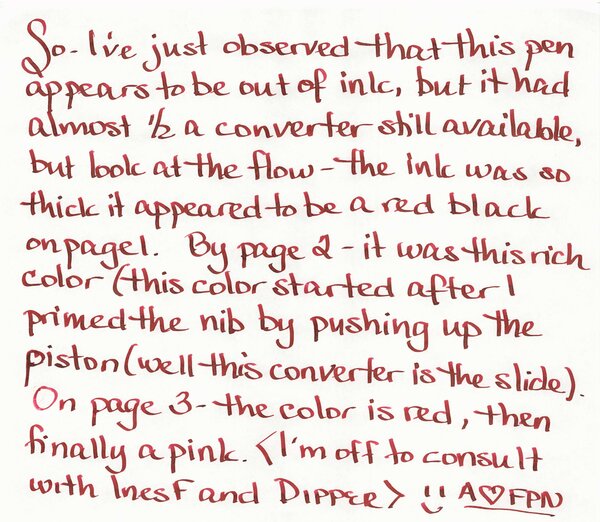 So - I've just observed that this pen
appears to be out of ink, but it had
almost 1/2 a converter still available,
but look at the flow - the ink was so
thick it appeared to be a red black
on page 1. By page 2 - it was this rich
color (this color started after I
primed the nib by pushing up the
piston (well this converter is the slide).
On page 3 - the color is red, then
finally a pink. <I'm off to consult
with InesF and DIPPER> :) A♡FPN